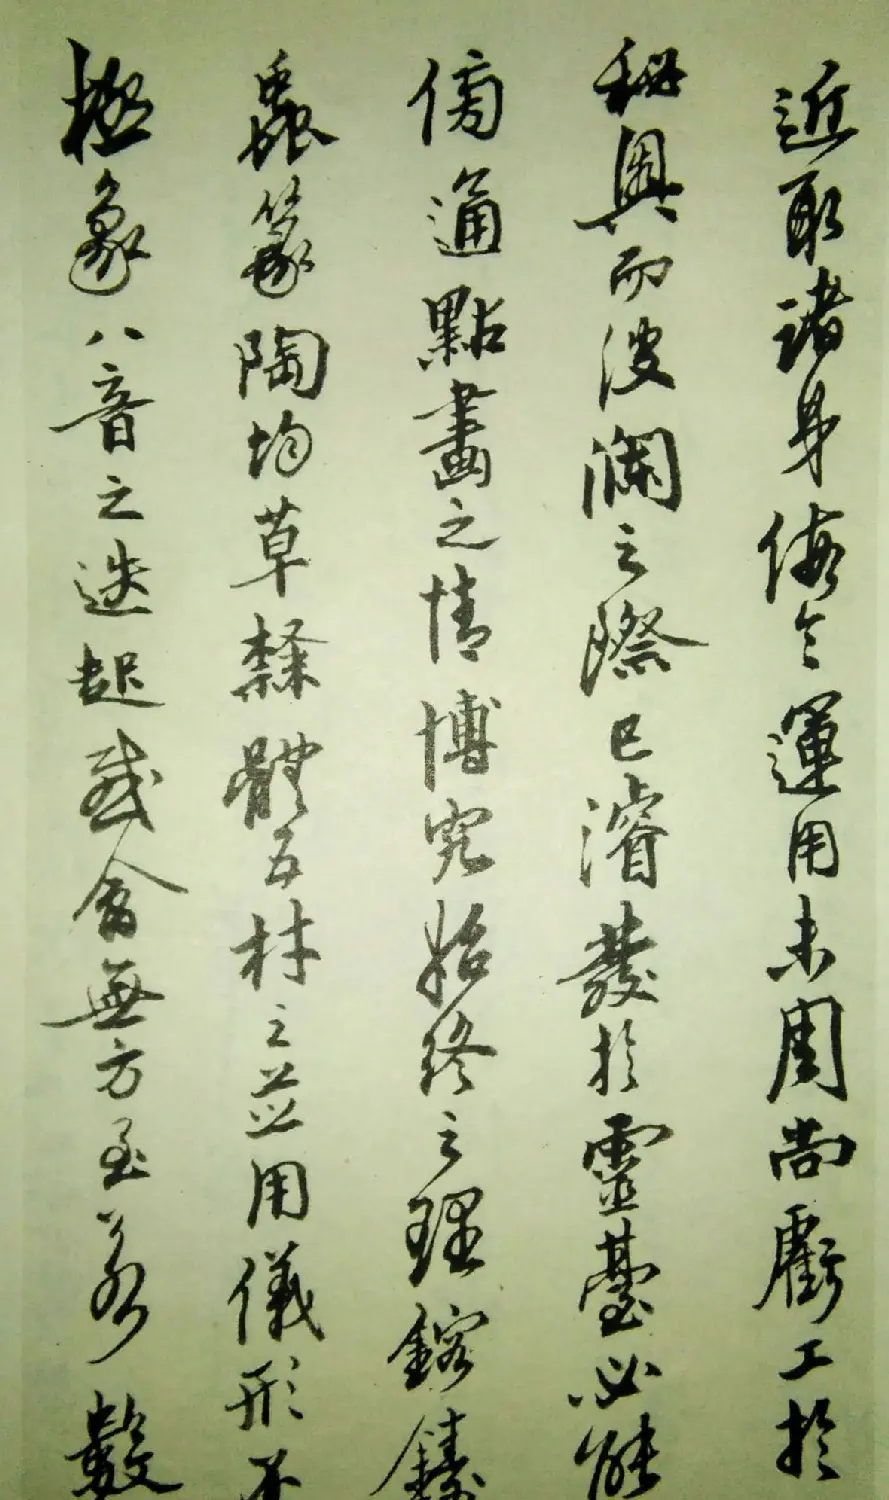 近取諸身假令運用未周尚虧工於
秘奧而波瀾之際已濬發於靈臺必能
傍通點畫之情博究始終之理鎔鑄
蟲篆陶均草隸體五材之並用儀形不
極象八音之迭起感會無方至若數